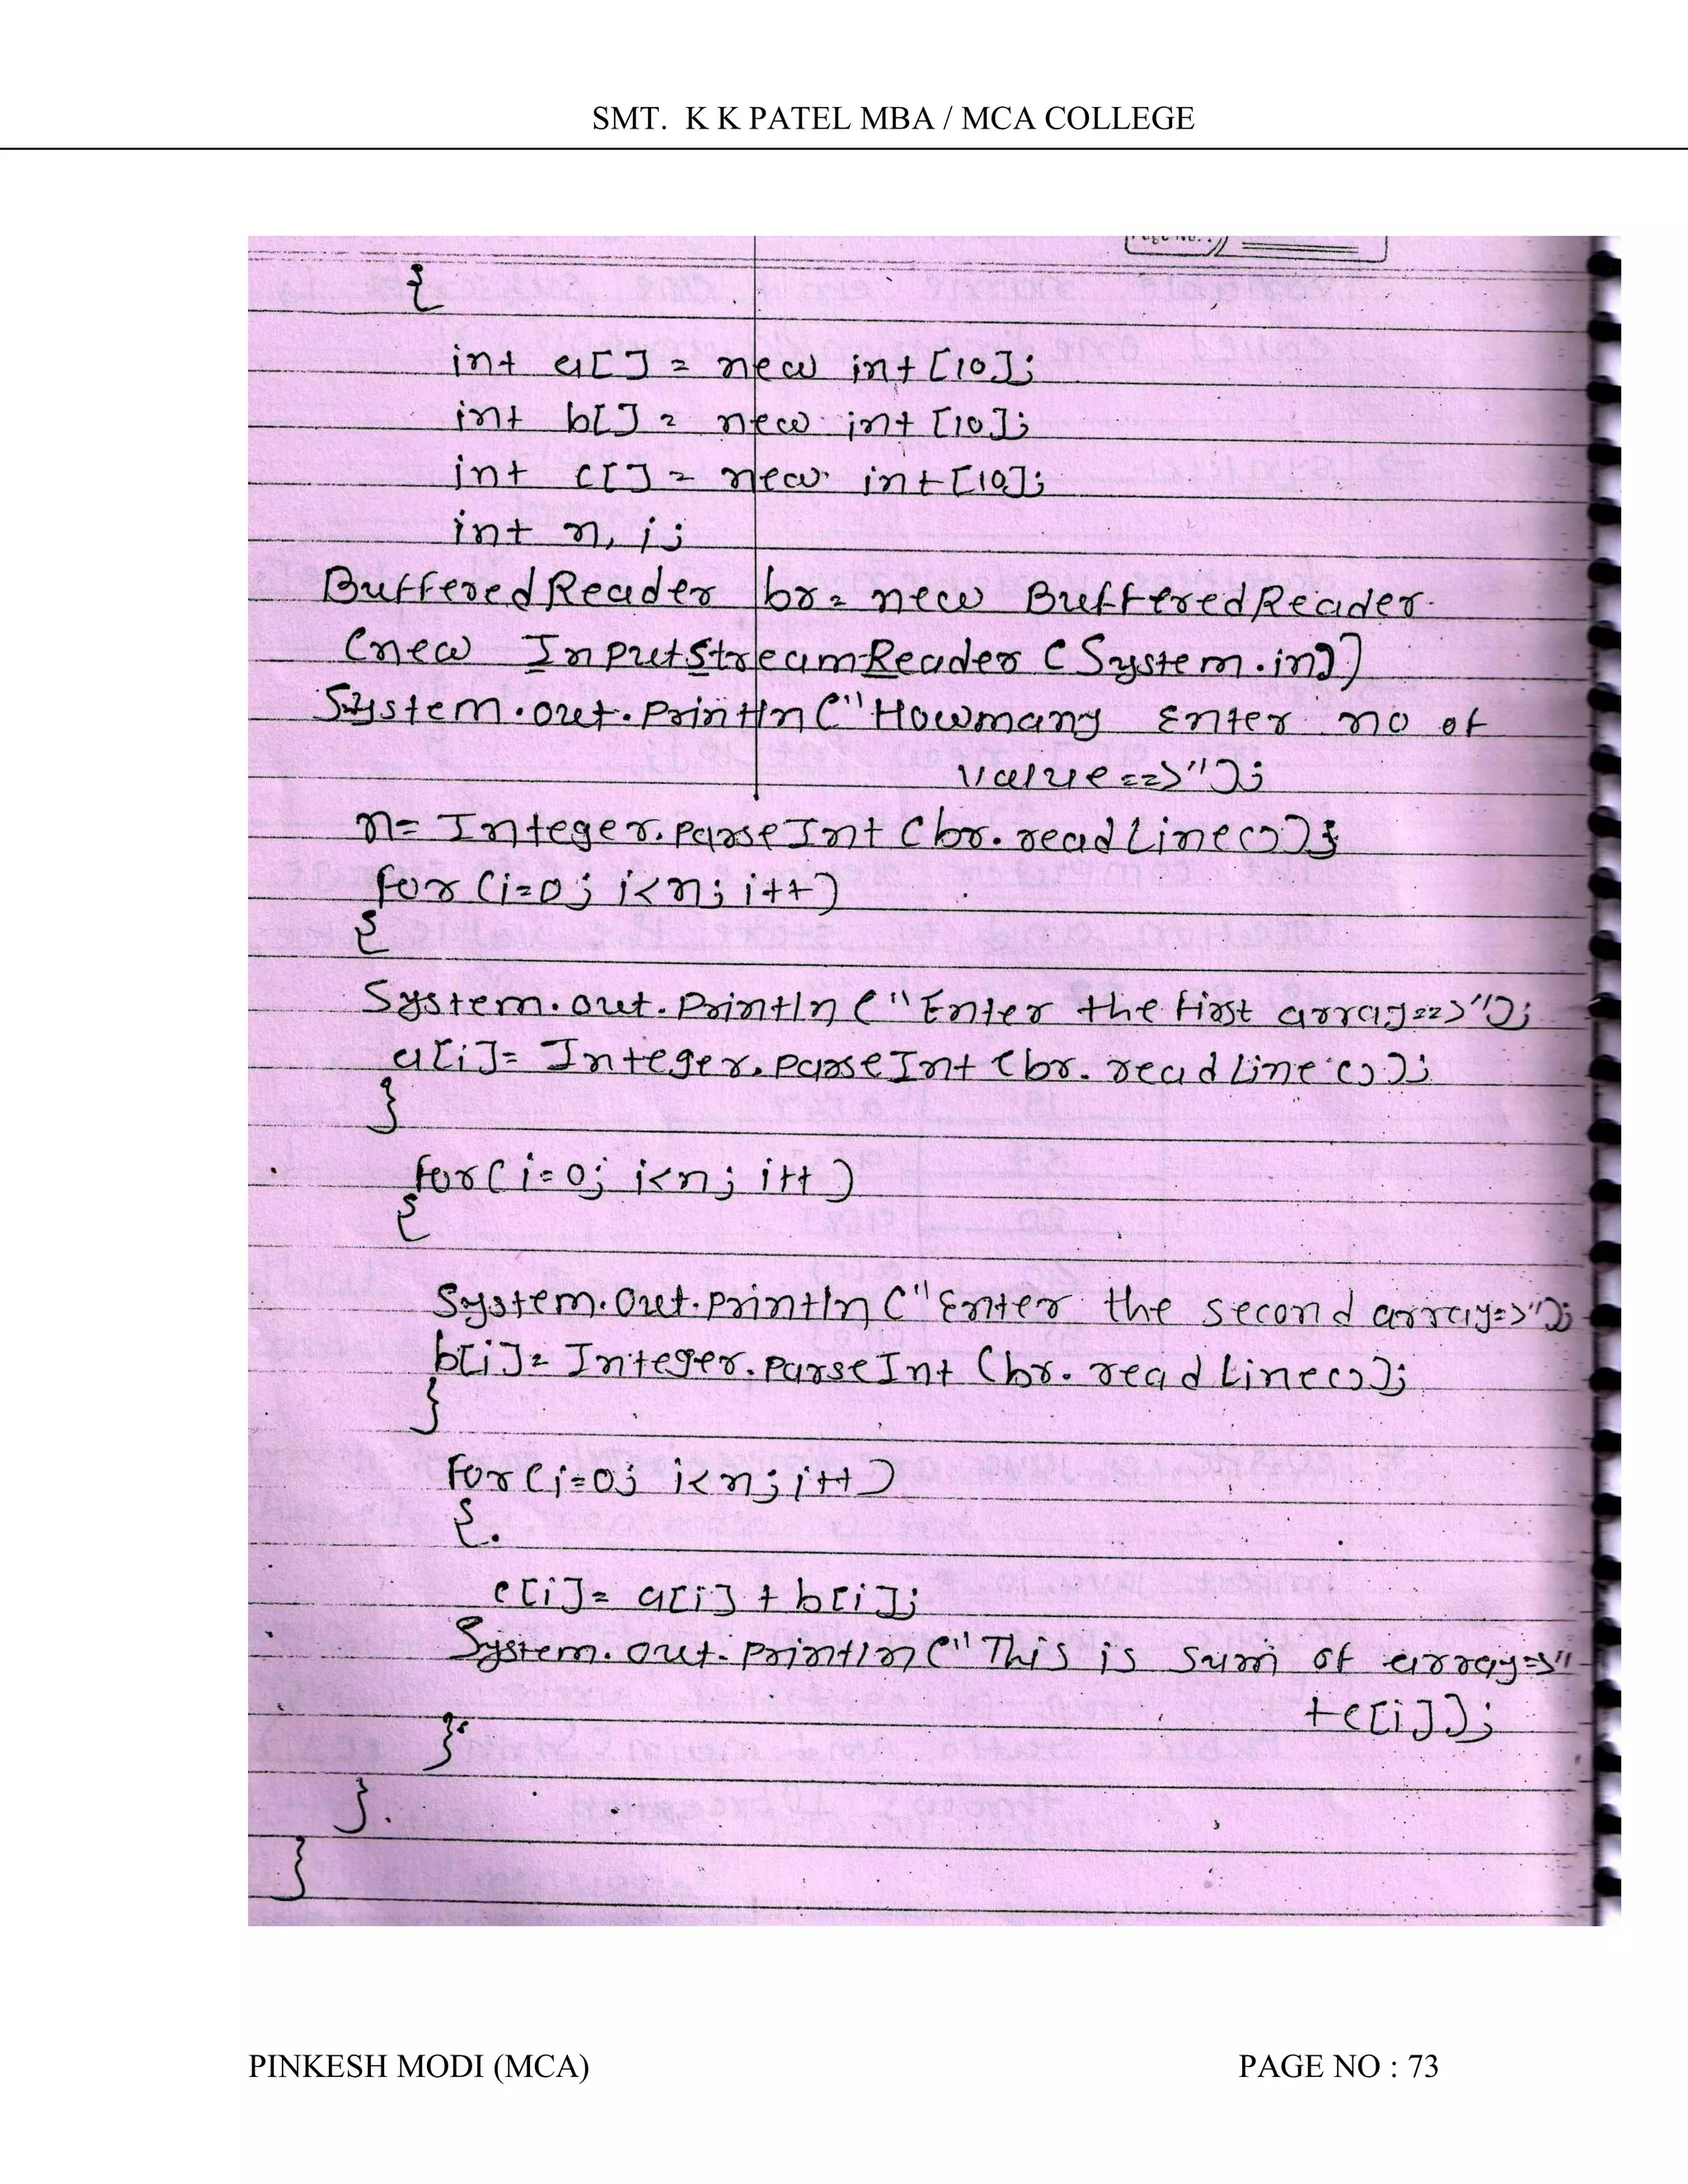 SMT. K K PATEL MBA / MCA COLLEGE
{
int a[] = new int [10];
int b[] = new int [10];
int c[] = new int [10];
int n, i;
BufferedReader br = new BufferedReader
(new InputStreamReader (System.in))
System.out.println ("Howmany Enter no of
value==>");
n= Integer.parseInt (br.readLine());
for (i=0; i<n; i++)
{
System.out.println ("Enter the first array==>");
a[i]= Integer.parseInt (br.readLine());
}
for (i=0; i<n; i++)
{
System.out.println ("Enter the second array=>");
b[i]= Integer.parseInt (br.readLine());
}
for (i=0; i<n; i++)
{
c[i]= a[i] + b[i];
System.out.println ("This is sum of array=>"
+c[i]);
}
}
}
PINKESH MODI (MCA) PAGE NO : 73